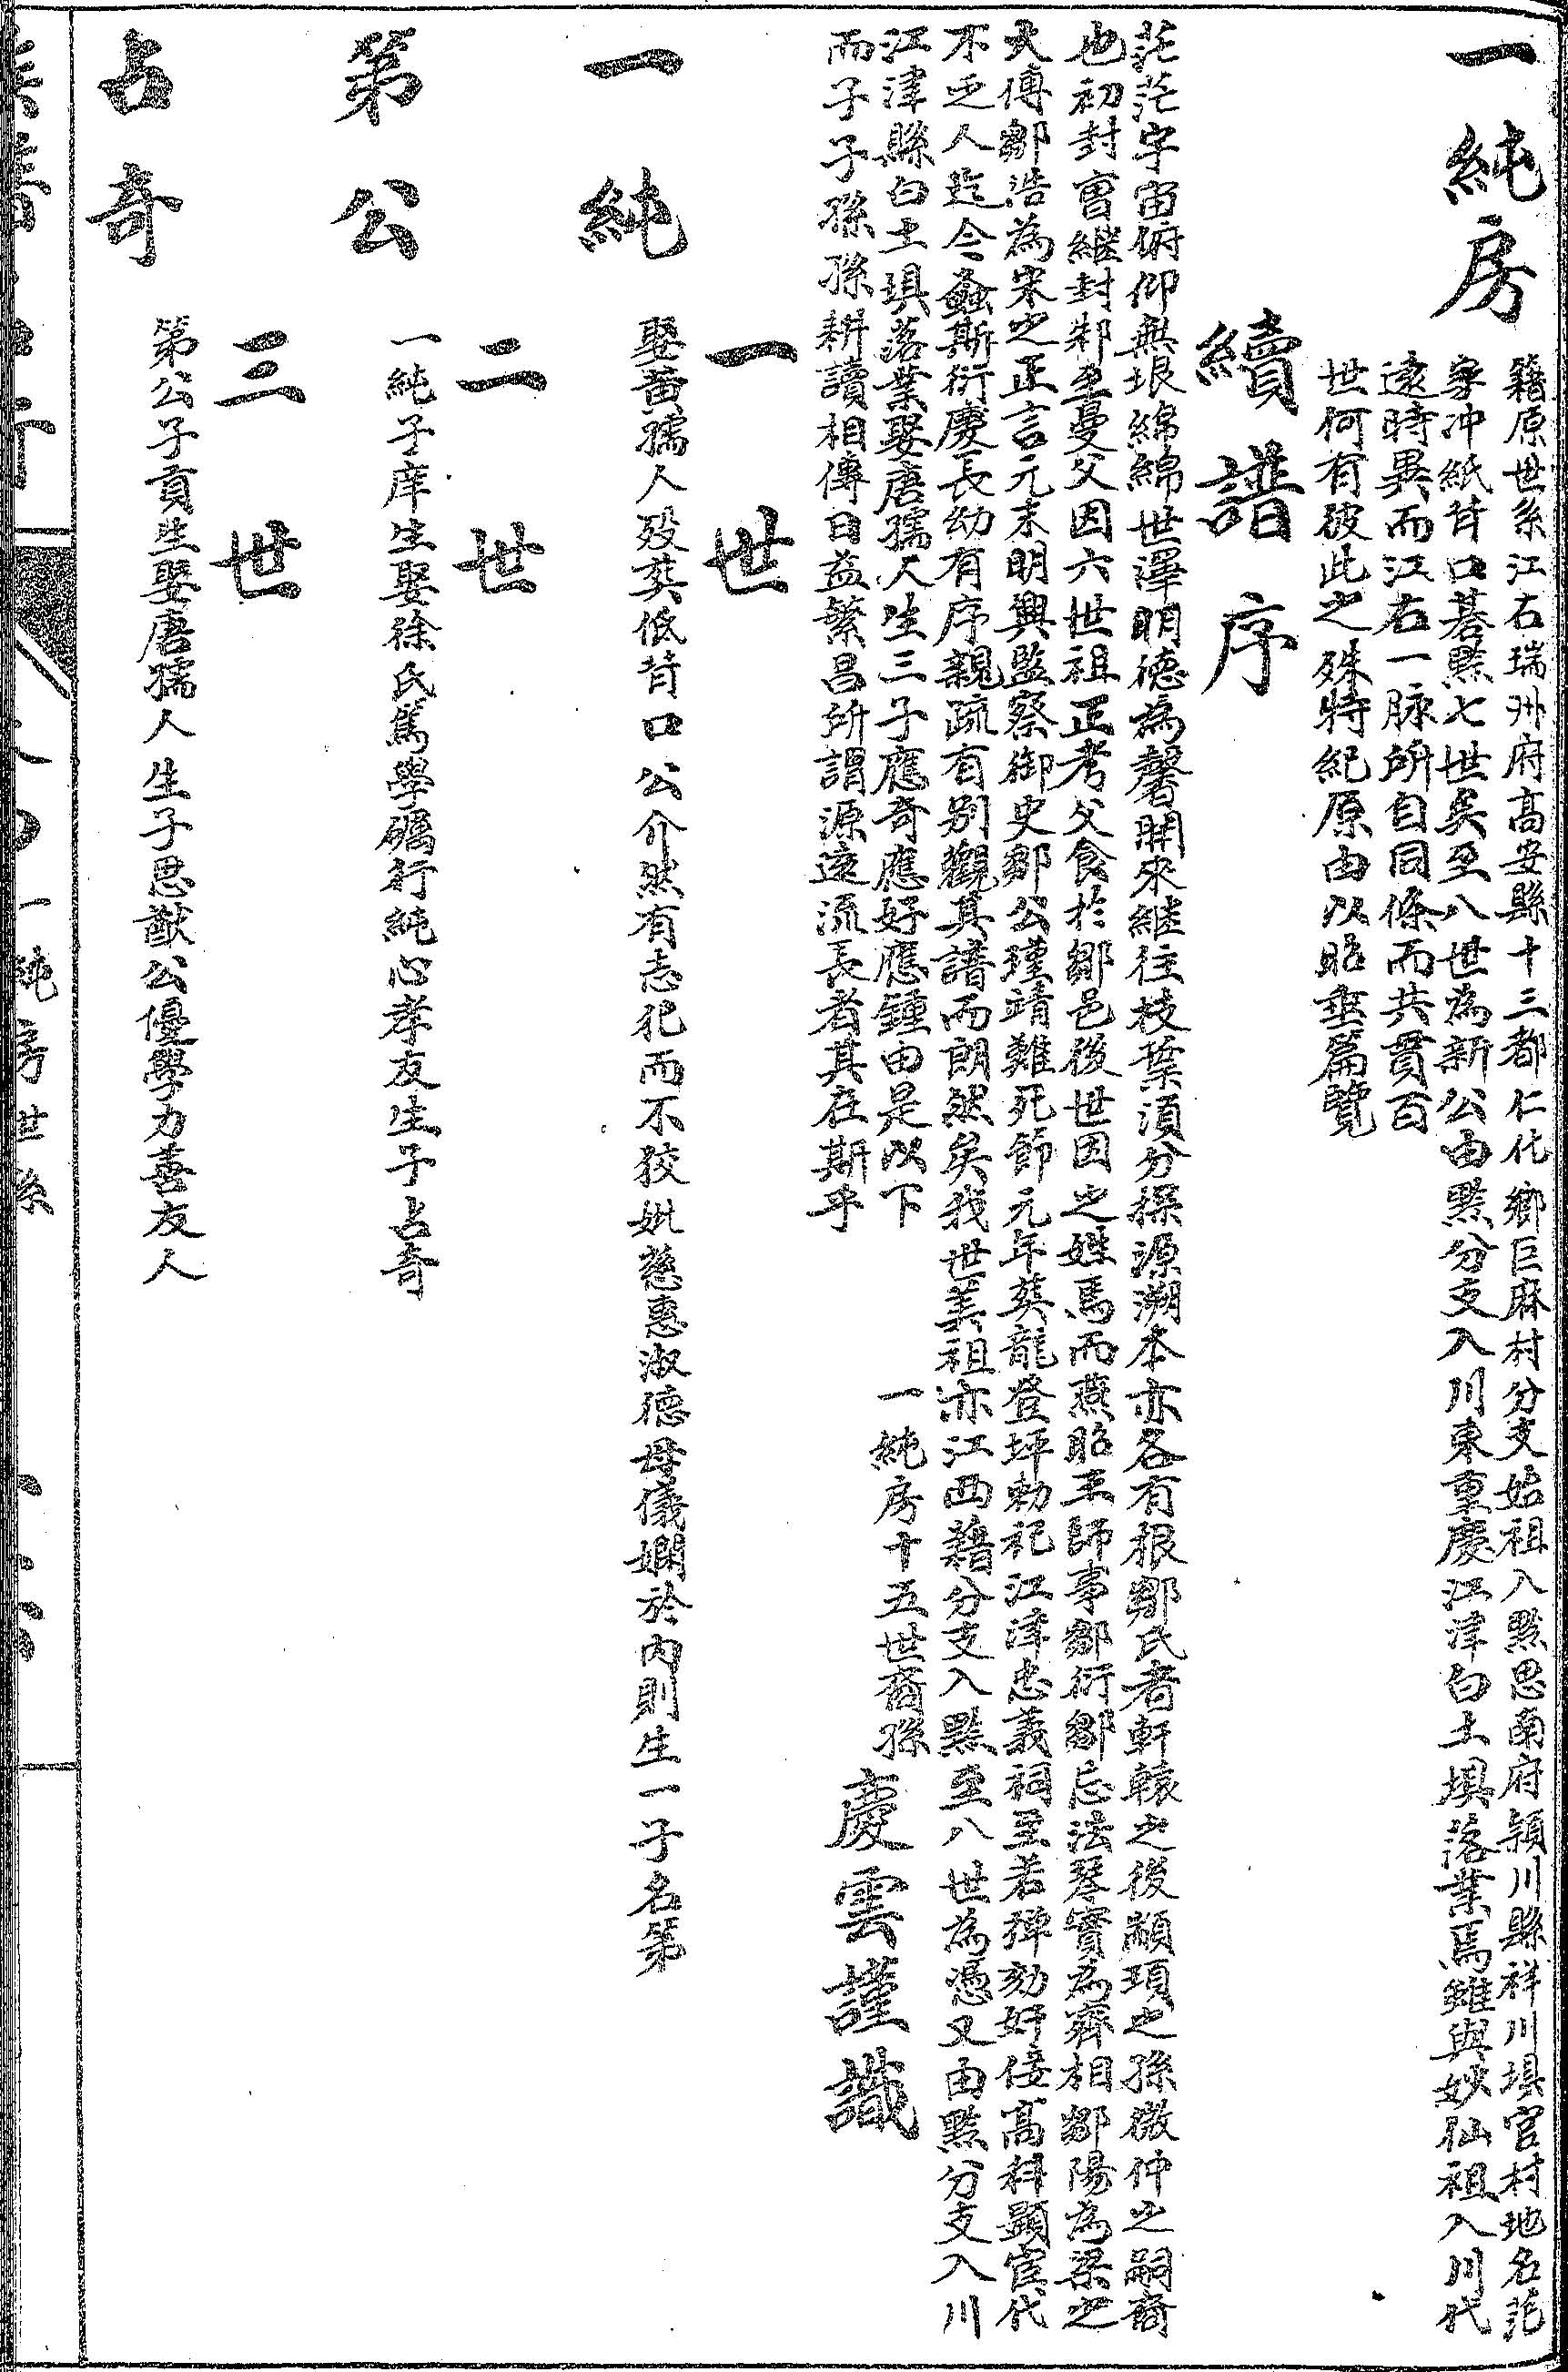 一純房
籍原世系江右瑞州府高安縣十三都仁化鄉巨麻村分支始祖入黔思南府頴川縣祥川垻官村地名茫
穿冲紙背口碁黔七世矣至八世為新公由黔分支入川東重慶江津白土垻落業焉雖與妙仙祖入川代
遠時異而江右一脉所自同條而共貫百
世何有彼此之殊特紀原由以昭垂篇覽
續譜序
茫茫宇宙俯仰無垠綿綿世澤明德為馨開來継往枝葉須分探源溯本亦各有根鄒氏者軒轅之後顓頊之孫微仲之嗣裔
也初封曺継封邾至曼父因六世祖正考父食於鄒邑後世因之姓焉而燕昭王師事鄒衍鄒忌法琴實為齊相鄒陽為梁之
大傅鄒浩為宋之正言元末明興監察御史鄒公瑾靖難死節元年葬龍登坪勅祀江津忠義祠至若彈劾奸佞高科顯宦代
不乏人迄今螽斯衍慶長幼有序親疏有别觀其譜而朗然矣我世美祖亦江西籍分支入黔至八世為憑又由黔分支入川
江津縣白土垻落業娶唐孺人生三子應奇應好應鍾由是以下
而子子孫孫耕讀相傳日益繁昌所謂源遠流長者其在斯乎
一純房十五世裔孫慶雲謹識
一世
一純
娶黄孺人殁葬低背口公介然有志犯而不狡妣慈惠淑德母儀嫻於內則生一子名第
二世
第公
一純子庠生娶徐氏篤學礪行純心孝友生子占奇
三世
占奇
第公子貢生娶唐孺人生子思猷公優學力善友人
一純房世系